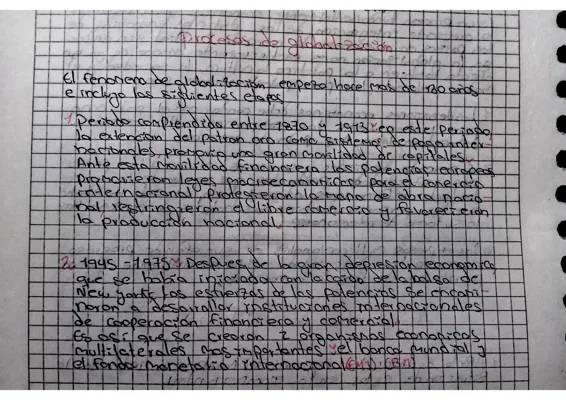 Procesos de globalización
El fenomeno de globalización empezo hace mas de 130 años
e incluye las siguientes etapas
1. Periodo comprendido entre 1870 y 1913: en este periodo
la extencion del patron oro como sistema de pago inter-
nacionales propicio una gran movilidad de capitales.
Ante esta movilidad financiera las potencias europeas
promovieron leyes macroeconomicas para el comercio
internacional, protegieron la mano de obra nacio-
nal restringieron el libre comercio y favorecieron
la producción nacional.
2. 1945 - 1975: Despues de la gran depresión economica
que se habia iniciado con la caida de la bolsa de
New York, los esfuerzos de las potencias se encami-
naron a desarrollar instituciones internacionales
de cooperación financiera y comercial.
Es asi que se crearon 2 organismos economicos
multilaterales mas importantes: el banco mundial y
el fondo monetario internacional (FMI) (BM)